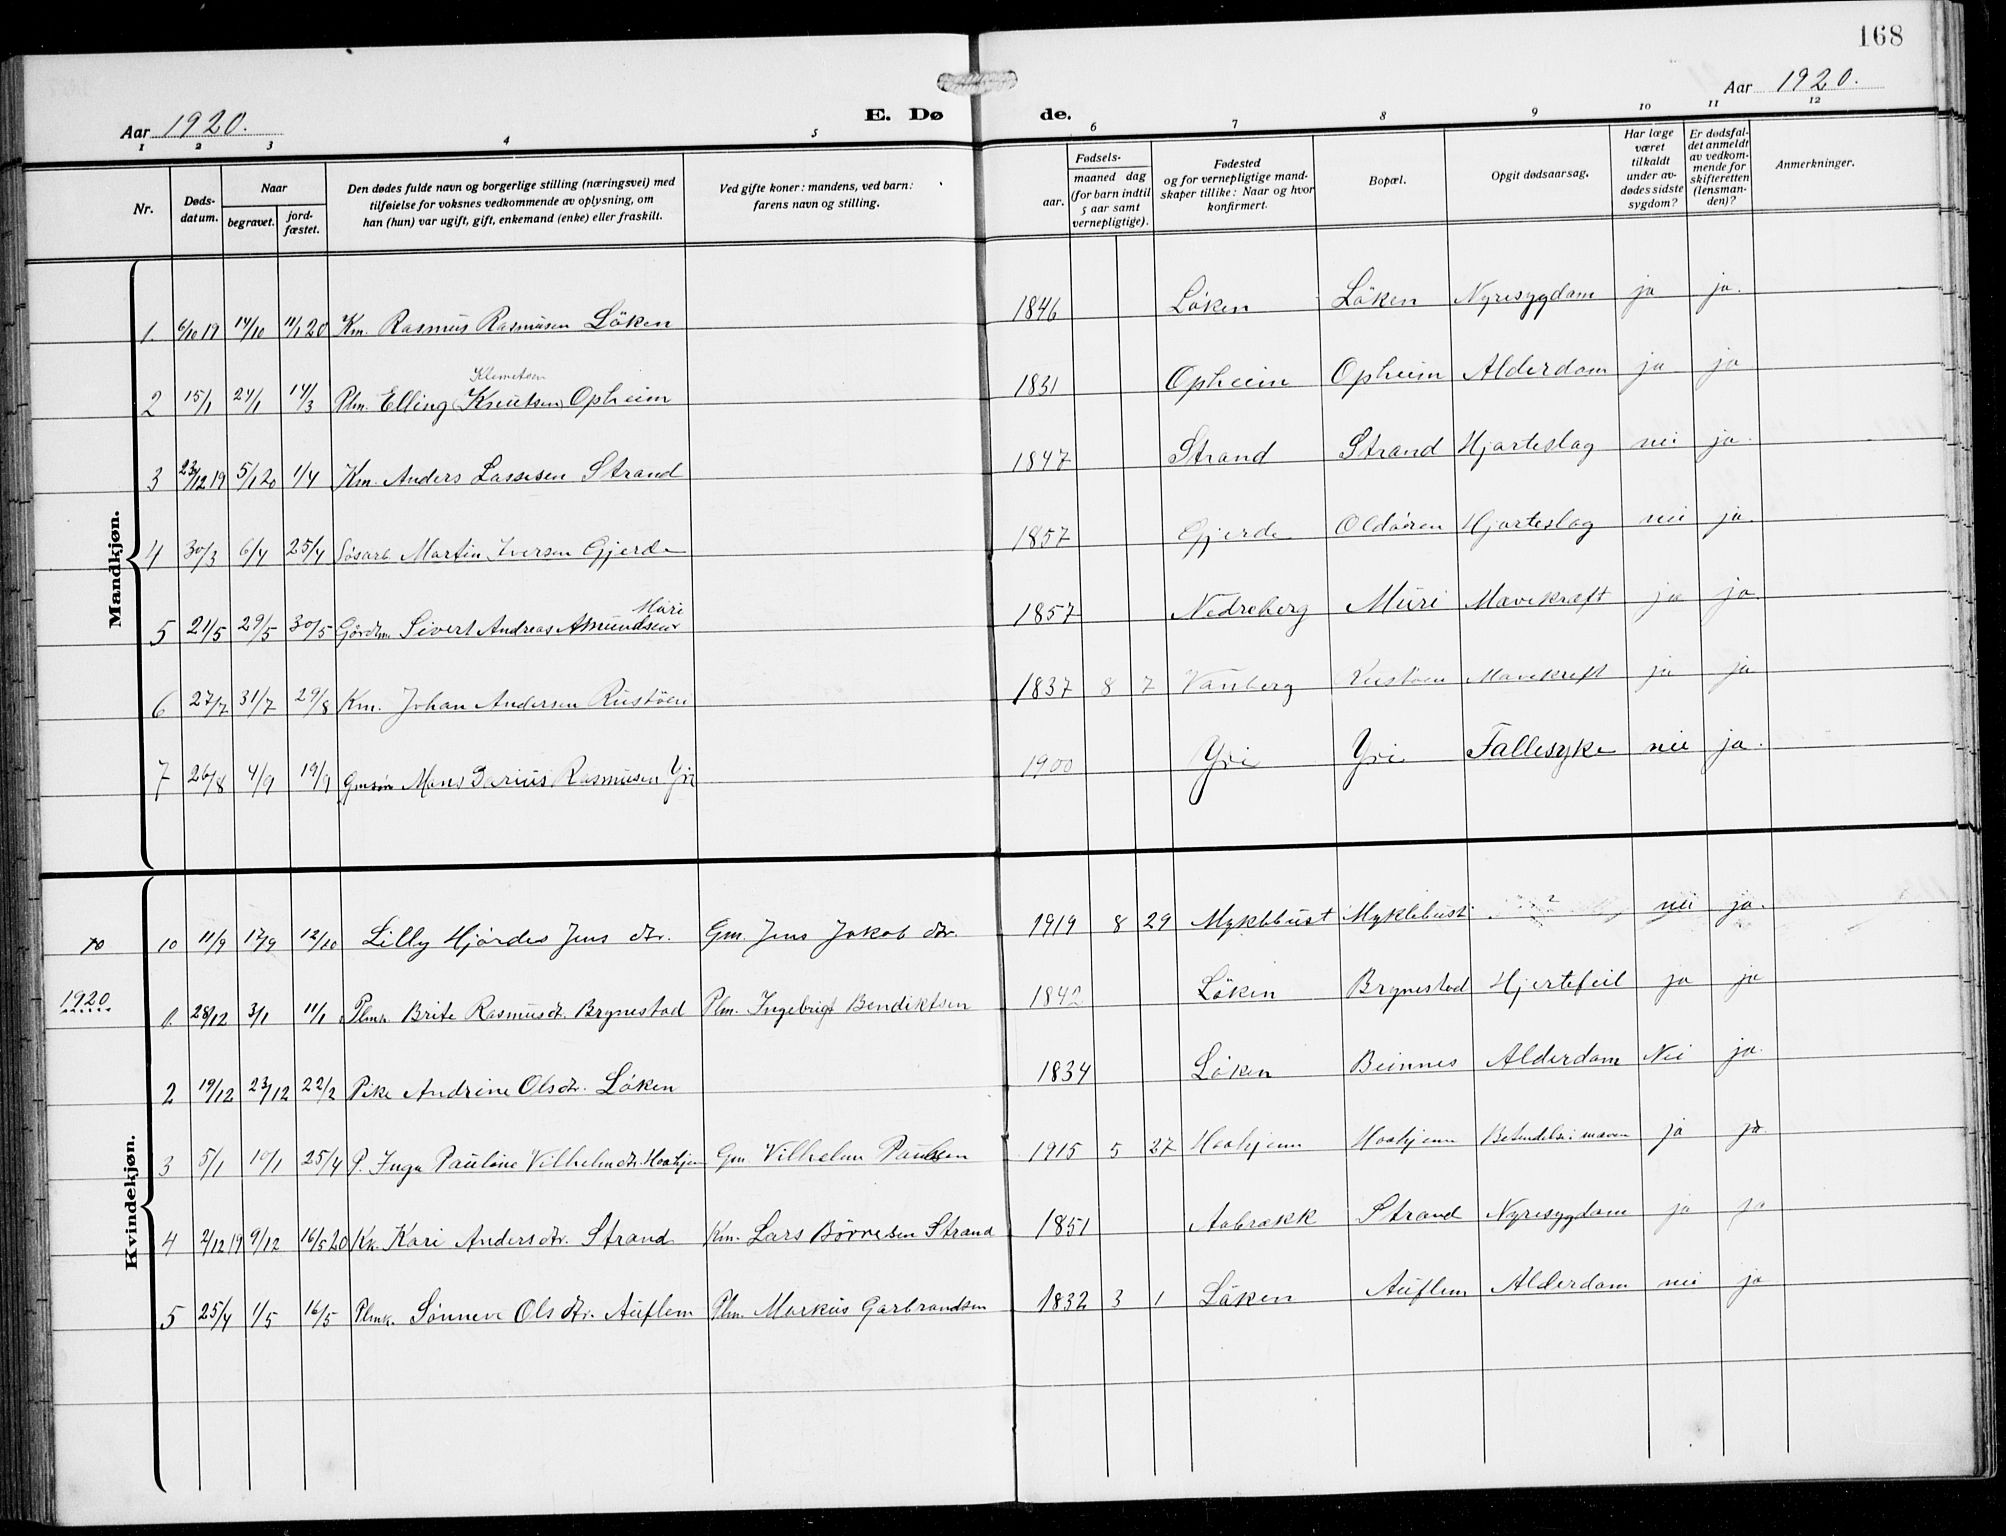 168
Aar 1920. E. Dø de. Aar 1920.
1 2 3 4 5 6 7 8 9 10 11 12
Nr.
Døds-
datum.
Naar
begravet.
jord-
fæstet.
Den dødes fulde navn og borgerlige stilling (næringsvei) med
tilføielse for voksnes vedkommende av oplysning, om
han (hun) var ugift, gift, enkemand (enke) eller fraskilt.
Ved gifte koner: mandens, ved barn:
farens navn og stilling.
Fødsels-
aar.
maaned dag
(for barn indtil
5 aar samt
vernepligtige).
Fødested
og for vernepligtige mand-
skaper tillike: Naar og hvor
konfirmert.
Bopæl.
Opgit dødsaarsag.
Har læge
været
tilkaldt
under av-
dødes sidste
sygdom?
Er dødsfal-
det anmeldt
av vedkom-
mende for
skifteretten
(lensman-
den)?
Anmerkninger.
Mandkjøn.
1. 6/10 19 14/10 11/1 20 Km. Rasmus Rasmusen Löken 1846 Löken Löken Nyresygdom ja ja.
Klemetsen
2 15/1 24/1 14/3 Plm. Elling (Knutsen) Opheim 1831 Opheim Opheim Alderdom ja ja
3 23/12 19 5/1 20 1/4 Km. Anders Lassesen Strand 1847 Strand Strand Hjarteslag nei ja.
4 30/3 6/4 25/4 Løsarb Martin Iversen Gjerde 1857 Gjerde Oldøren Hjarteslag nei ja.
Muri
5 21/5 29/5 30/5 Gårdm. Sivert Andreas Amundsen 1857 Nedreberg Muri Mavekræft ja ja
6 27/7 31/7 29/8 Km. Johan Andersen Rustöen 1837 8 7 Vanberg Rustöen Mavekreft ja ja
7 26/8 4/9 19/9 Gmsøn Mons Darius Rasmusen Yri 1900 Yri Yri Fallesyke nei ja.
Kvindekjøn.
10 10 11/9 17/9 12/10 Lilly Hjördes Jens dtr. Gm. Jens Jakob dtr. 1919 8 29 Myklebust Myklebust ? nei ja.
1920.
1. 28/12 3/1 11/1 Plmk. Brite Rasmusdt. Brynestad Plm. Ingebrigt Bendiktsen 1842 Löken Brynestad Hjertefeil ja ja
2 19/12 23/12 22/2 Pike Andrine Olsdtr. Löken 1834 Löken Beinnes Alderdom Nei ja.
3 5/1 10/1 25/4 P. Inga Pauline Vilhelmdtr. Haahjem Gm Vilhelm Paulsen 1915 5 27 Haahjem Haahjem Betendelse i maven ja ja
4 2/12 19 9/12 16/5 20 Kk. Kari Andersdtr. Strand Km. Lars Børresen Strand 1851 Aabrekk Strand Nyresygdom ja ja
5 25/4 1/5 16/5 Plmk. Sønneve Olsdtr. Auflem Plm. Markus Garbrandsen 1832 3 1 Löken Auflem Alderdom nei ja